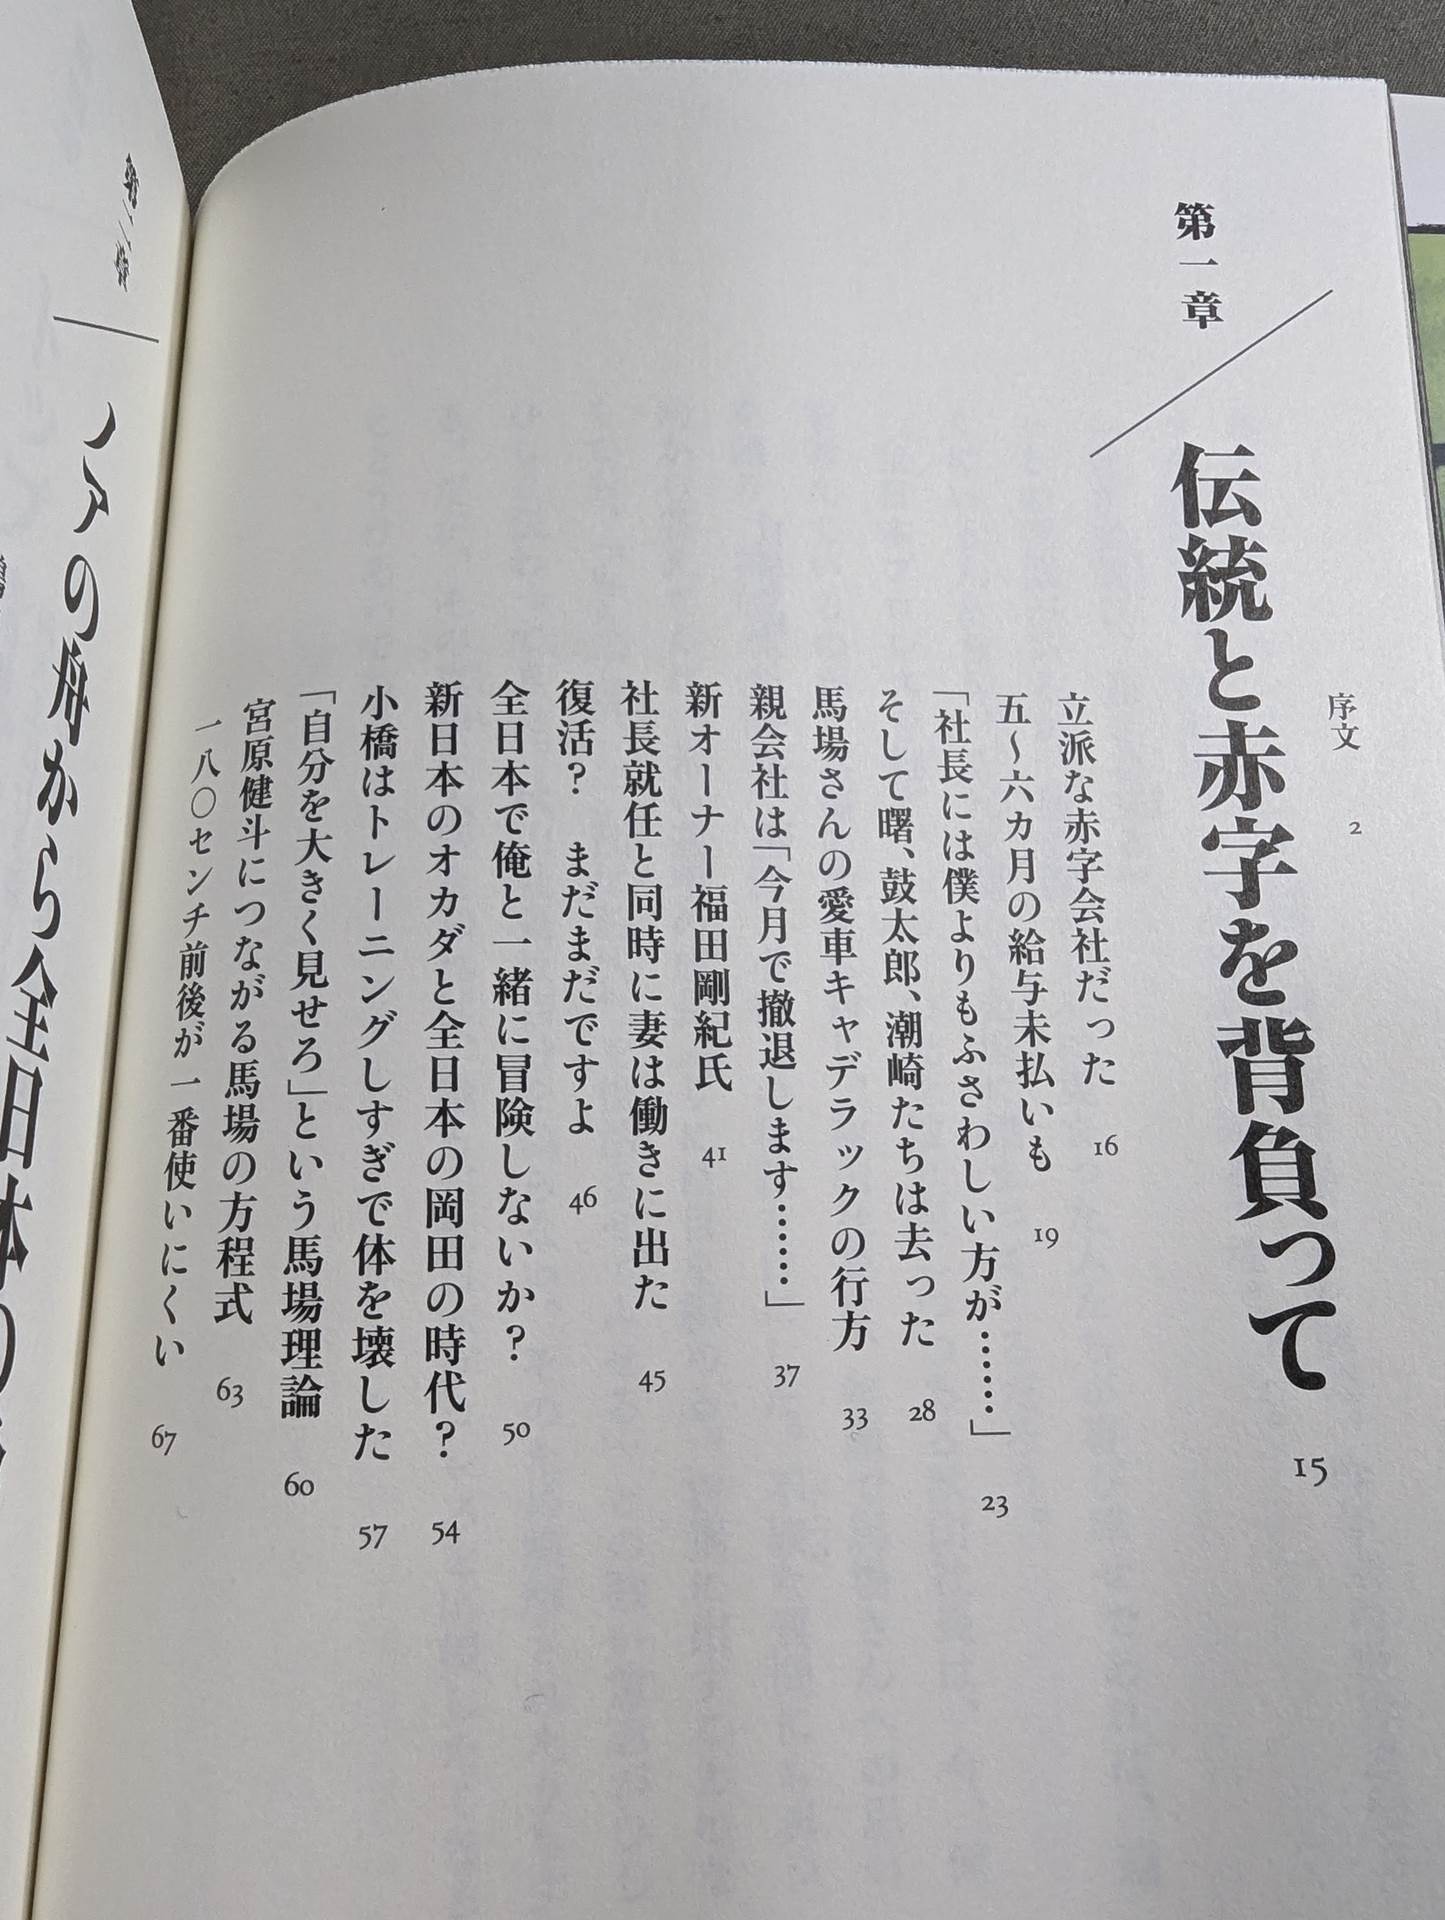 序文 2
第一章
伝統と赤字を背負って 15
立派な赤字会社だった 16
五〜六カ月の給与未払いも 19
「社長には僕よりもふさわしい方が……」 23
そして曙、鼓太郎、潮崎たちは去った 28
馬場さんの愛車キャデラックの行方 33
親会社は「今月で撤退します……」 37
新オーナー福田剛紀氏 41
社長就任と同時に妻は働きに出た 45
復活？　まだまだですよ 46
全日本で俺と一緒に冒険しないか？ 50
新日本のオカダと全日本の岡田の時代？ 54
小橋はトレーニングしすぎで体を壊した 57
「自分を大きく見せろ」という馬場理論 60
宮原健斗につながる馬場の方程式 63
一八〇センチ前後が一番使いにくい 67
第二章
ノアの舟から全日本の